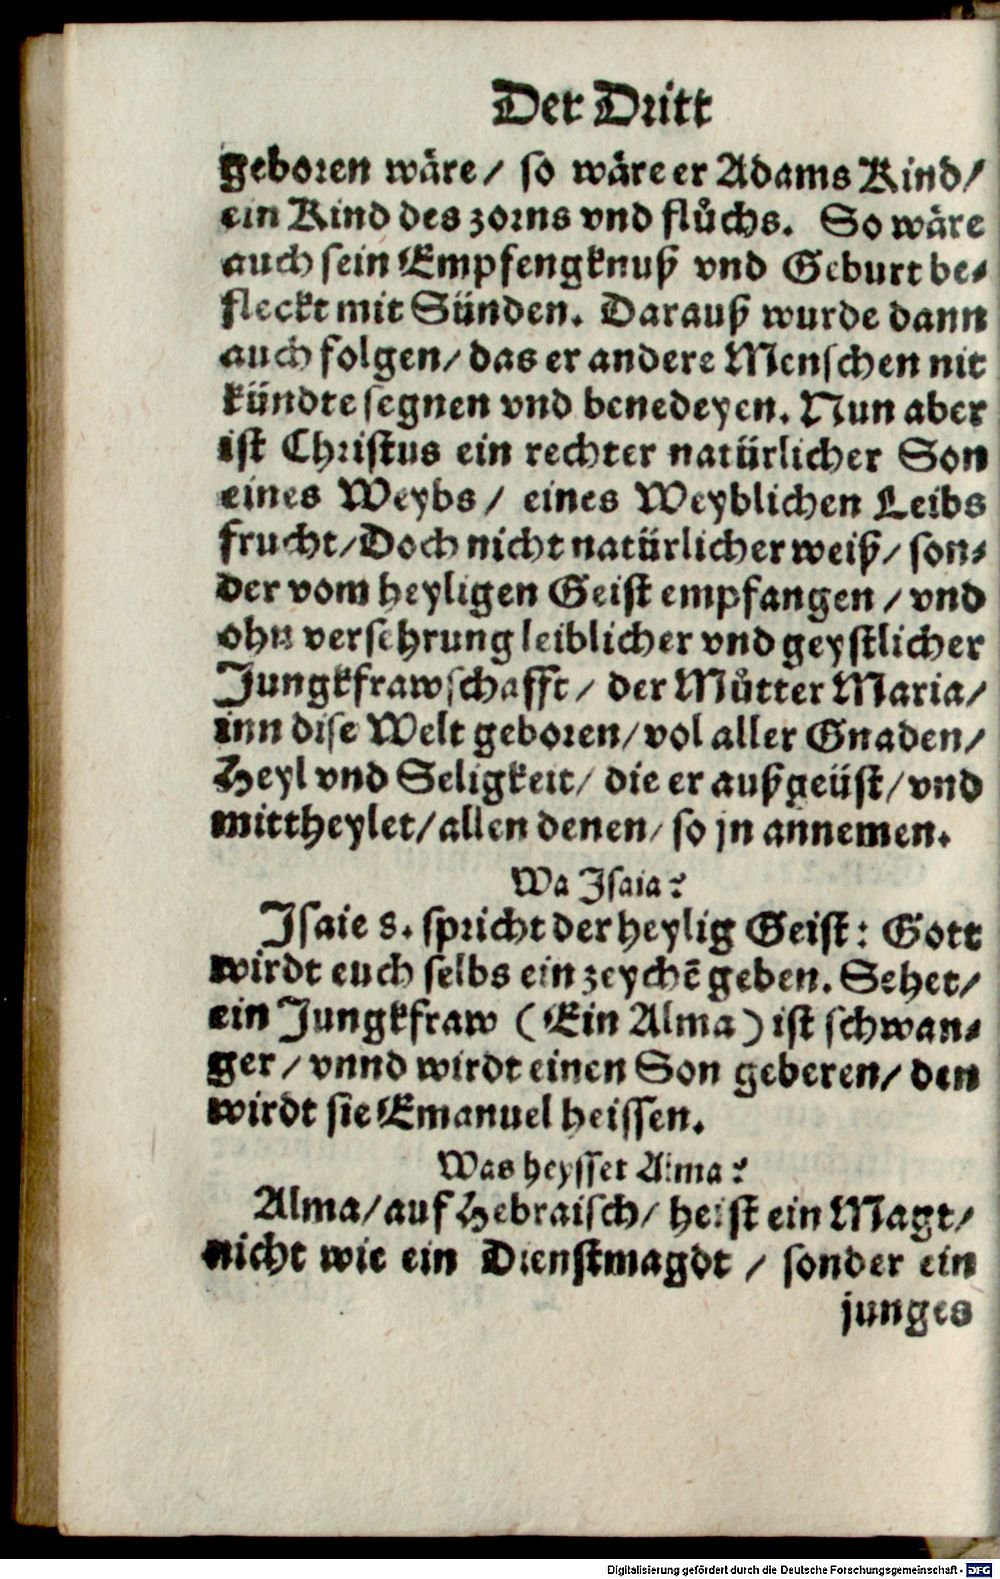 Der Dritt
geboren wäre/ so wäre er Adams Kind/
ein Kind des zorns vnd flůchs. So wäre
auch sein Empfengknuß vnd Geburt be-
fleckt mit Sünden. Darauß wurde dann
auch folgen/ das er andere Menschen nit
kündte segnen vnd benedeyen. Nun aber
ist Christus ein rechter natürlicher Son
eines Weybs/ eines Weyblichen Leibs
frucht/ Doch nicht natürlicher weiß/ son-
der vom heyligen Geist empfangen/ vnd
ohn versehrung leiblicher vnd geystlicher
Jungkfrawschafft/ der Můtter Maria/
inn dise Welt geboren/ vol aller Gnaden/
Heyl vnd Seligkeit/ die er außgeüst/ vnd
mittheylet/ allen denen/ so jn annemen.
Wa Isaia?
Isaie 8. spricht der heylig Geist: Gott
wirdt euch selbs ein zeychē geben. Sehet/
ein Jungkfraw (Ein Alma) ist schwan-
ger/ vnnd wirdt einen Son geberen/ den
wirdt sie Emanuel heissen.
Was heysset Alma?
Alma/ auf Hebraisch/ heist ein Magt/
nicht wie ein Dienstmagdt/ sonder ein
junges
Digitalisierung gefördert durch die Deutsche Forschungsgemeinschaft - DFG